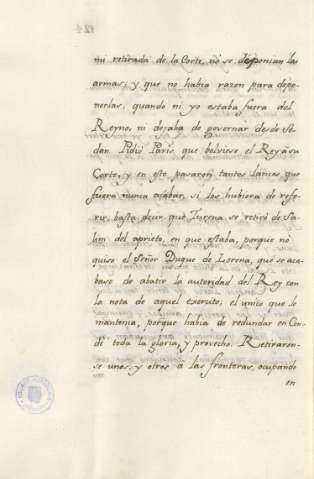 mi retirada de la Corte, no se deponian las
armas, y que no habia razon para depo-
nerlas, quando ni yo estaba fuera del
Reyno, ni dejaba de governar desde Se-
dan. Pidio Paris, que bolviese el Rey à su
Corte, y en esto pasaron tantos lances, que
fuera nunca acabar, si los hubiera de refe-
rir, basta decir, que Turena se retiró de
lin del aprieto, en que estaba, porque no
quiso el Señor Duque de Lorena, que se aca-
base de abatir la autoridad del Rey con
la rota de aquel exercito; el unico que se
mantenia, porque habia de redundar en Con-
dé toda la gloria, y provecho. Retiraron-
se unos, y otros à las fronteras, ocupando
en